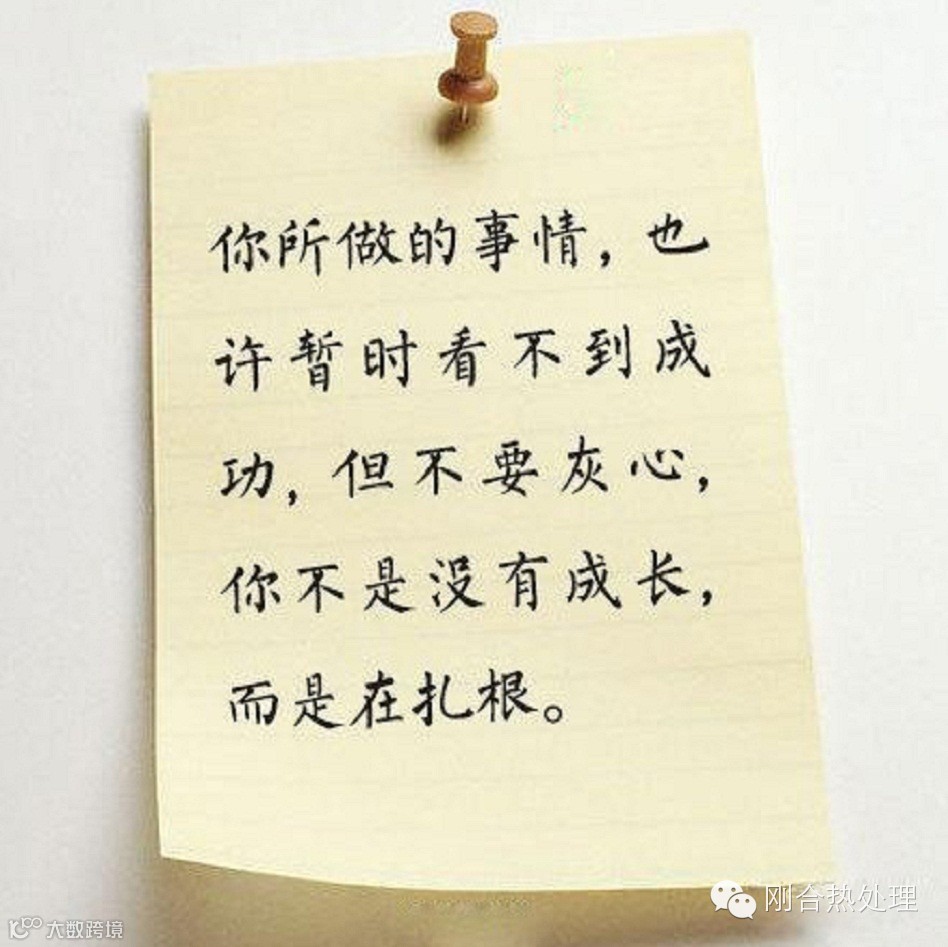 你所做的事情，也
许暂时看不到成
功，但不要灰心，
你不是没有成长，
而是在扎根。
刚合热处理
大数跨境